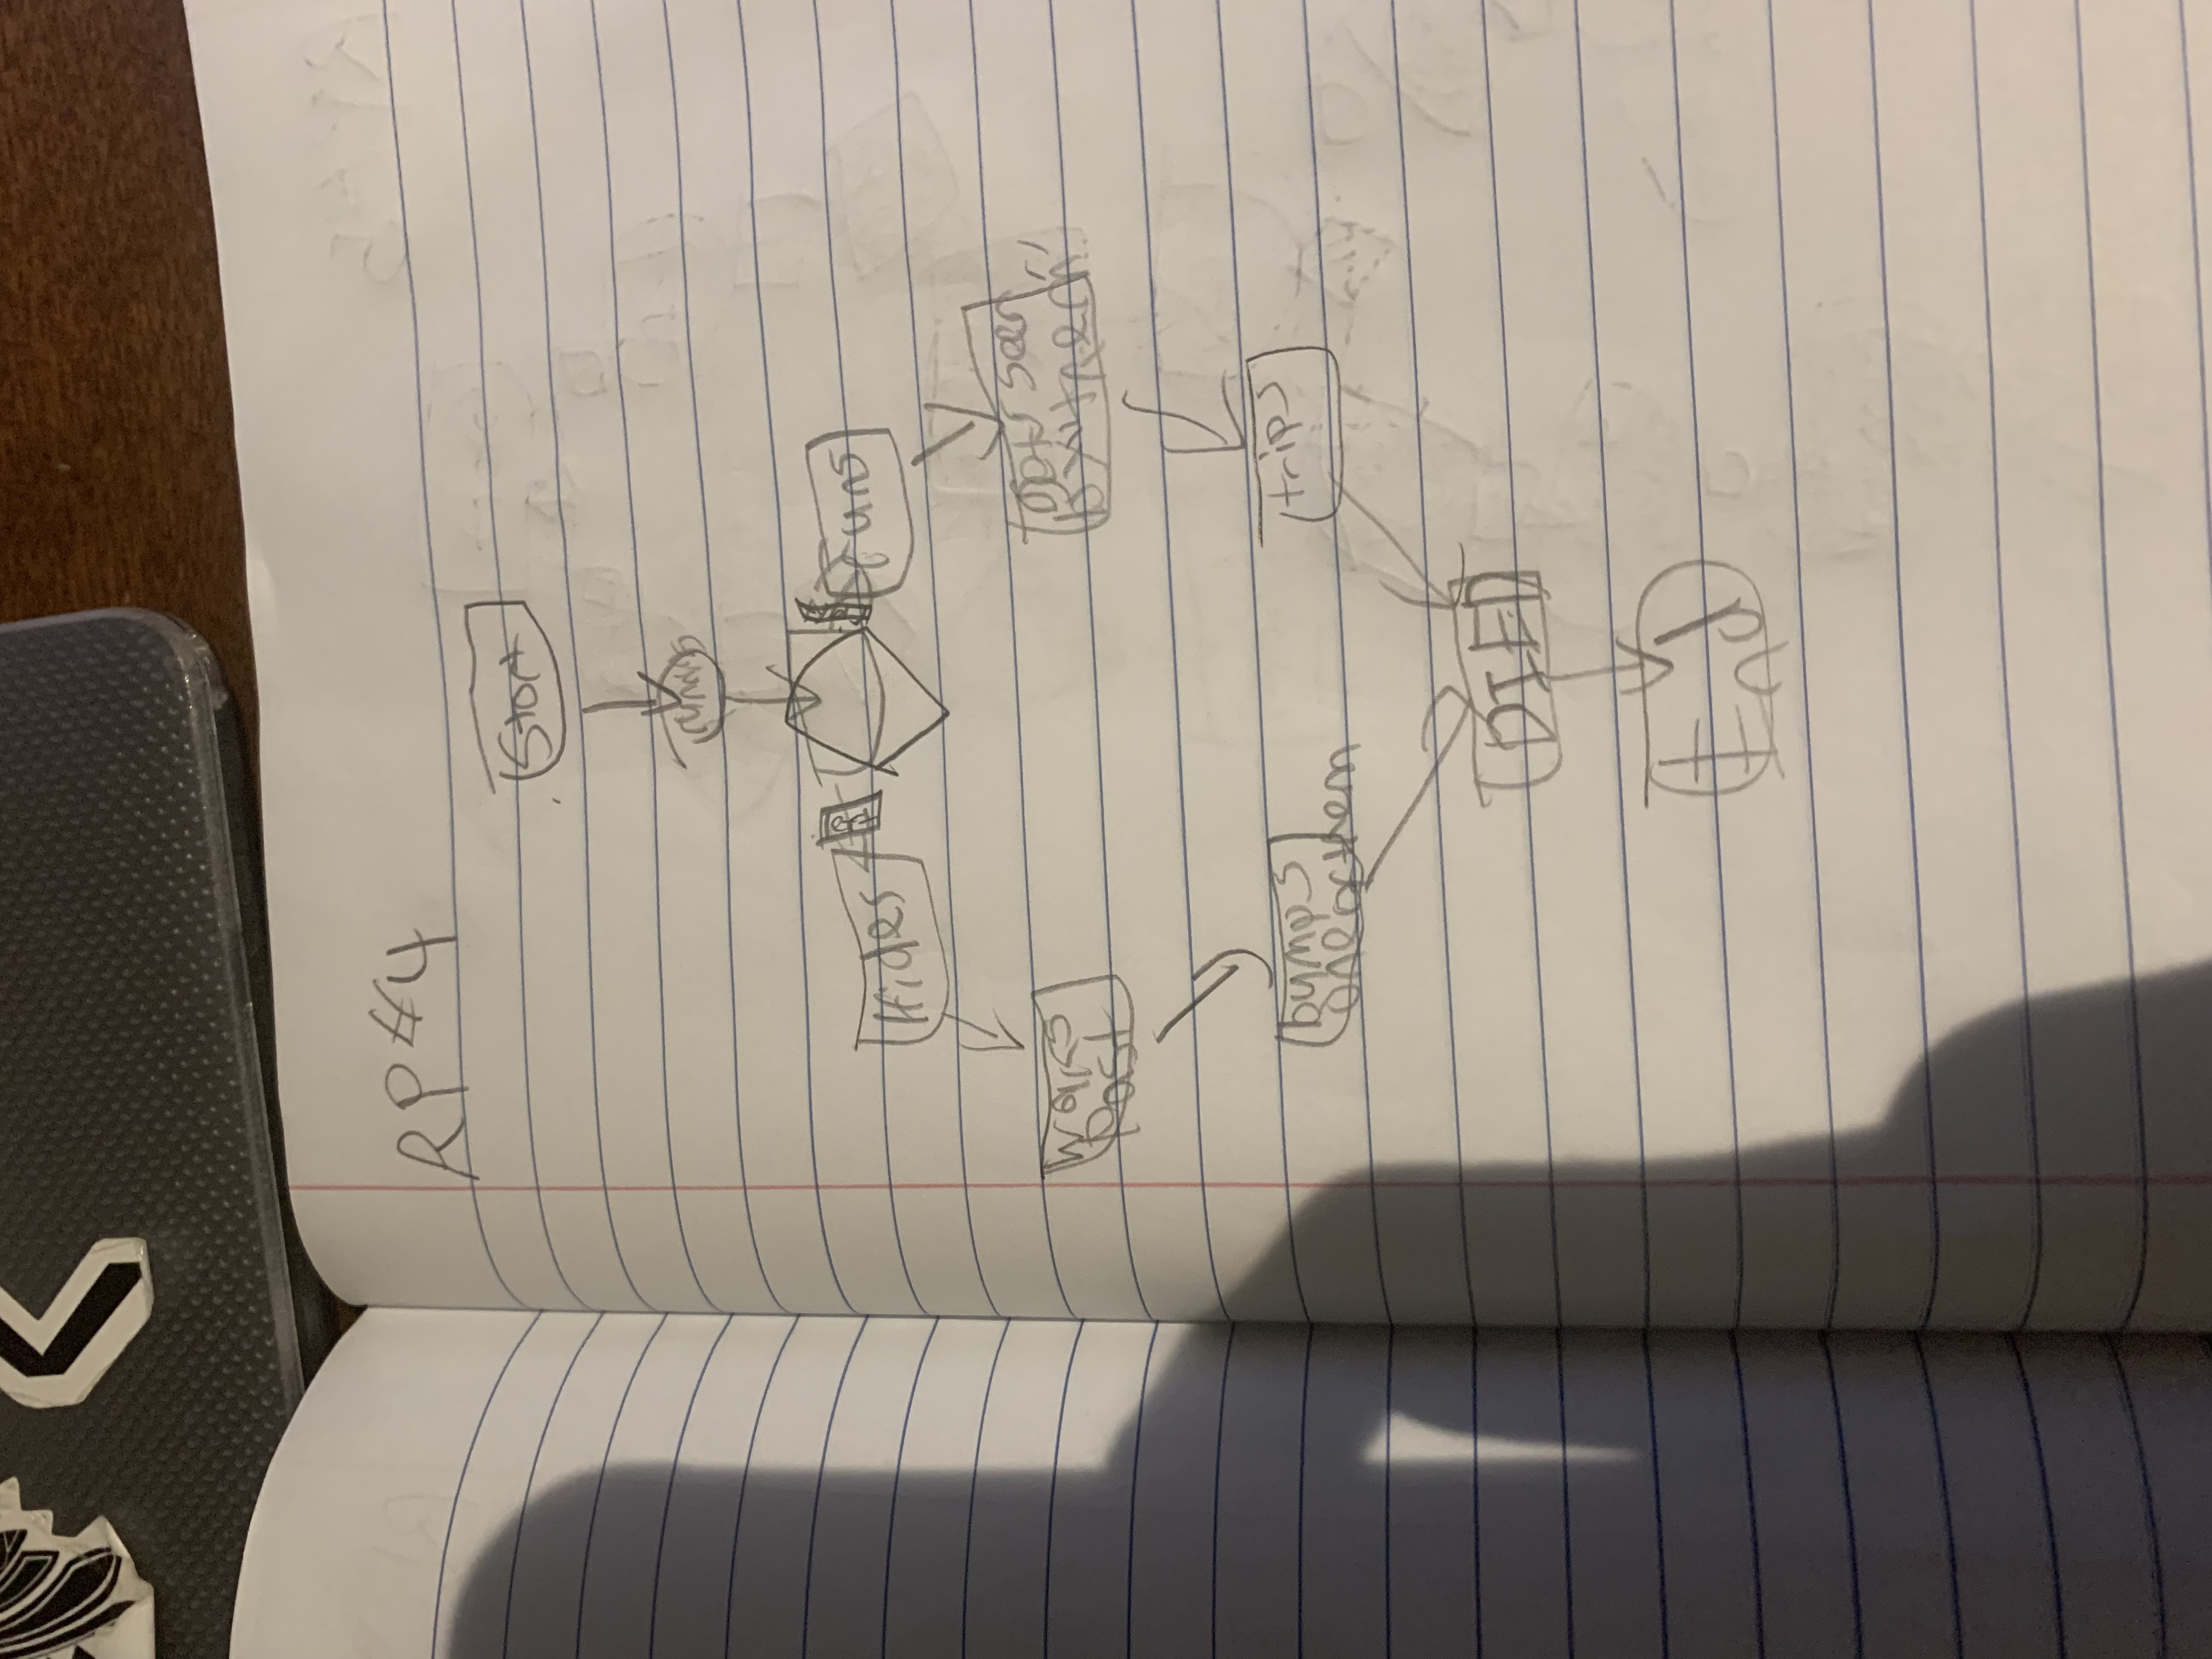 RP #4
Start
Hides
runs
Walks
Past
gets seen
by them
bumps
one of them
trips
DIED
End